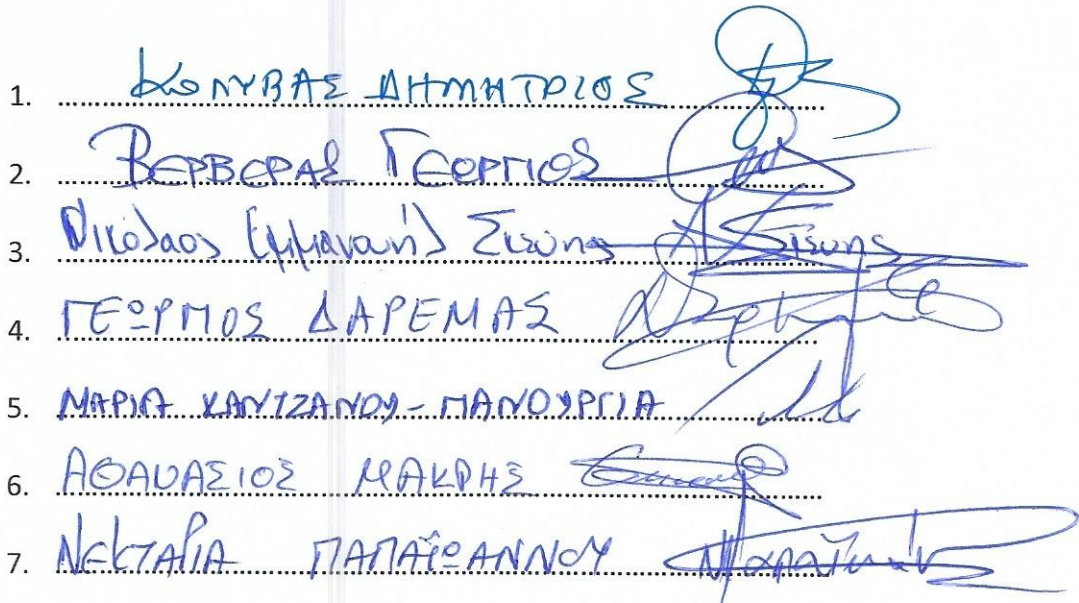 1. ΚΟΛΥΒΑΣ ΔΗΜΗΤΡΙΟΣ
2. ΒΕΡΒΕΡΑΣ ΓΕΩΡΓΙΟΣ
3. Νικόλαος Εμμανουήλ Σισύνης Σισύνης
4. ΓΕΩΡΓΙΟΣ ΔΑΡΕΜΑΣ
5. ΜΑΡΙΑ ΧΑΝΤΖΑΝΟΥ-ΠΑΝΟΥΡΓΙΑ
6. ΑΘΑΝΑΣΙΟΣ ΜΑΚΡΗΣ
7. ΝΕΚΤΑΡΙΑ ΠΑΠΑΪΩΑΝΝΟΥ